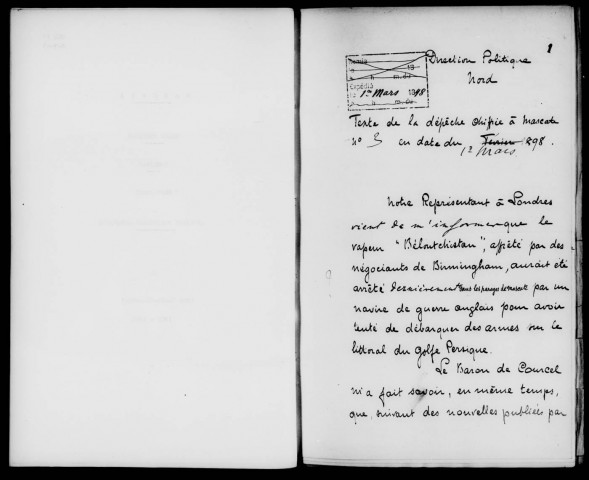 1
Direction Politique
Nord
Remis
19
h m. du
Expédié
le 1er Mars 1898
h m. du
Texte de la dépêche chiffrée à Mascate
no 3 en date du Février 1898.
1er Mars
Notre Représentant à Londres
vient de m'informer que le
vapeur "Béloutchistan", affrété par des
négociants de Birmingham, aurait été
arrêté dernièrement dans les parages de Mascate par un
navire de guerre anglais pour avoir
tenté de débarquer des armes sur le
littoral du Golfe Persique.
Le Baron de Courcel
m'a fait savoir, en même temps,
que, suivant des nouvelles publiées par